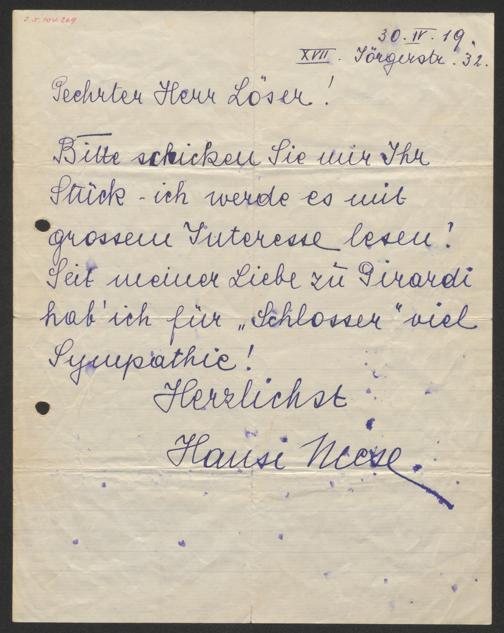 30. IV. 19.
XVII. Jörgerstr. 32.
Geehrter Herr Löser!
Bitte schicken Sie mir Ihr
Stück - ich werde es mit
grossem Interesse lesen!
Seit meiner Liebe zu Girardi
hab' ich für „Schlosser" viel
Sympathie!
Herzlichst
Hansi Niese.